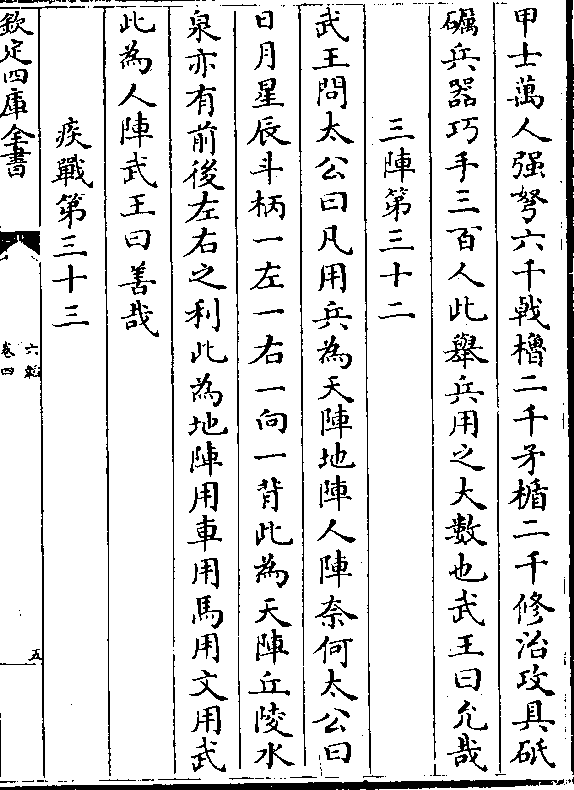 甲士萬人强弩六千戟櫓二千矛楯二千修治攻具砥
礪兵器巧手三百人此舉兵用之大數也武王曰允哉
三陣第三十二
武王問太公曰凡用兵為天陣地陣人陣奈何太公曰
日月星辰斗柄一左一右一向一背此為天陣丘陵水
泉亦有前後左右之利此為地陣用車用馬用文用武
此為人陣武王曰善哉
疾戰第三十三
欽定四庫全書
六韜
卷四
五